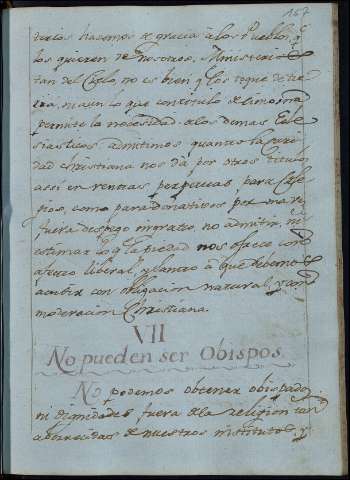 157
terios hacemos de gracia à los Pueblos, q.e
los quieren de nosotros. Ministerio
tan del Cielo no es bien q. los toque de tie
rra, ni aun lo que con titulo de limosna
permite la necesidad a los demas Ecle
siasticos admitimos quanto la cari
dad christiana nos da por otros titulos
assi en rentas perpetuas, para Cole
gios, como para donativos
fuera despego ingrato, no admitir, ni
estimar lo q. la piedad nos ofrece con
afecto liberal, y llaneza à que debemos
acudir con obligacion natural, y con
moderacion Christiana.
VII
No pueden ser Obispos.
No podemos obtener obispado,
ni dignidades fuera de la religion tan
aborrecidas de nuestros institutos, y